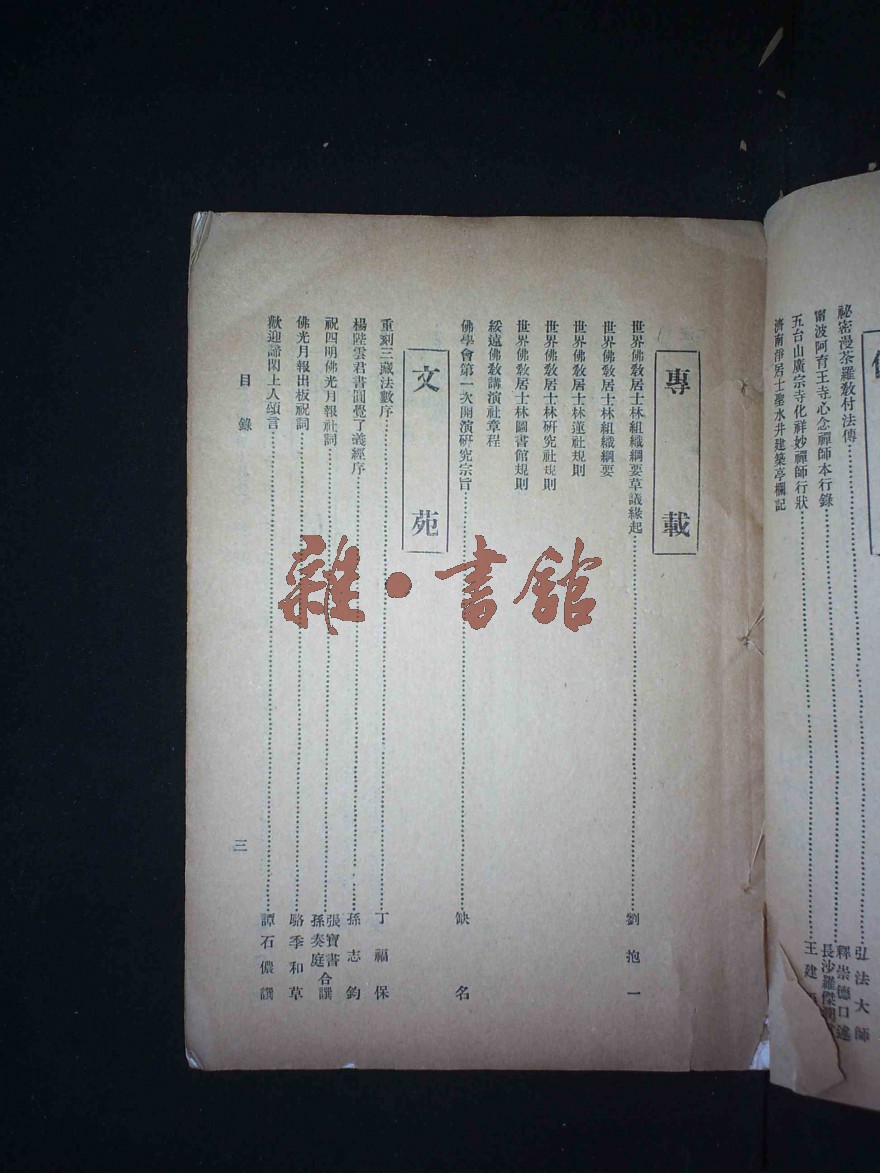 祕密漫荼羅敎付法傳……弘法大師
甯波阿育王寺心念禪師本行錄……釋崇德口述
長沙羅傑
五台山廣宗寺化祥妙禪師行狀……王建
濟南淨居士聖水井建築亭欄記
專載
世界佛敎居士林組織綱要草議緣起……劉抱一
世界佛敎居士林組織綱要
世界佛敎居士林蓮社規則
世界佛敎居士林研究社規則
世界佛敎居士林圖書館規則
綏遠佛敎講演社章程
佛學會第一次開演研究宗旨……缺名
文苑
重刻三藏法數序……丁福保
楊陞雲君書圓覺了義經序……孫志鈞
祝四明佛光月報社詞……張寶書 孫奏庭 合譔
佛光月報出板祝詞……駱季和草
歡迎諦閑上人頌言……譚石儂譔
目錄
三
雜·書館